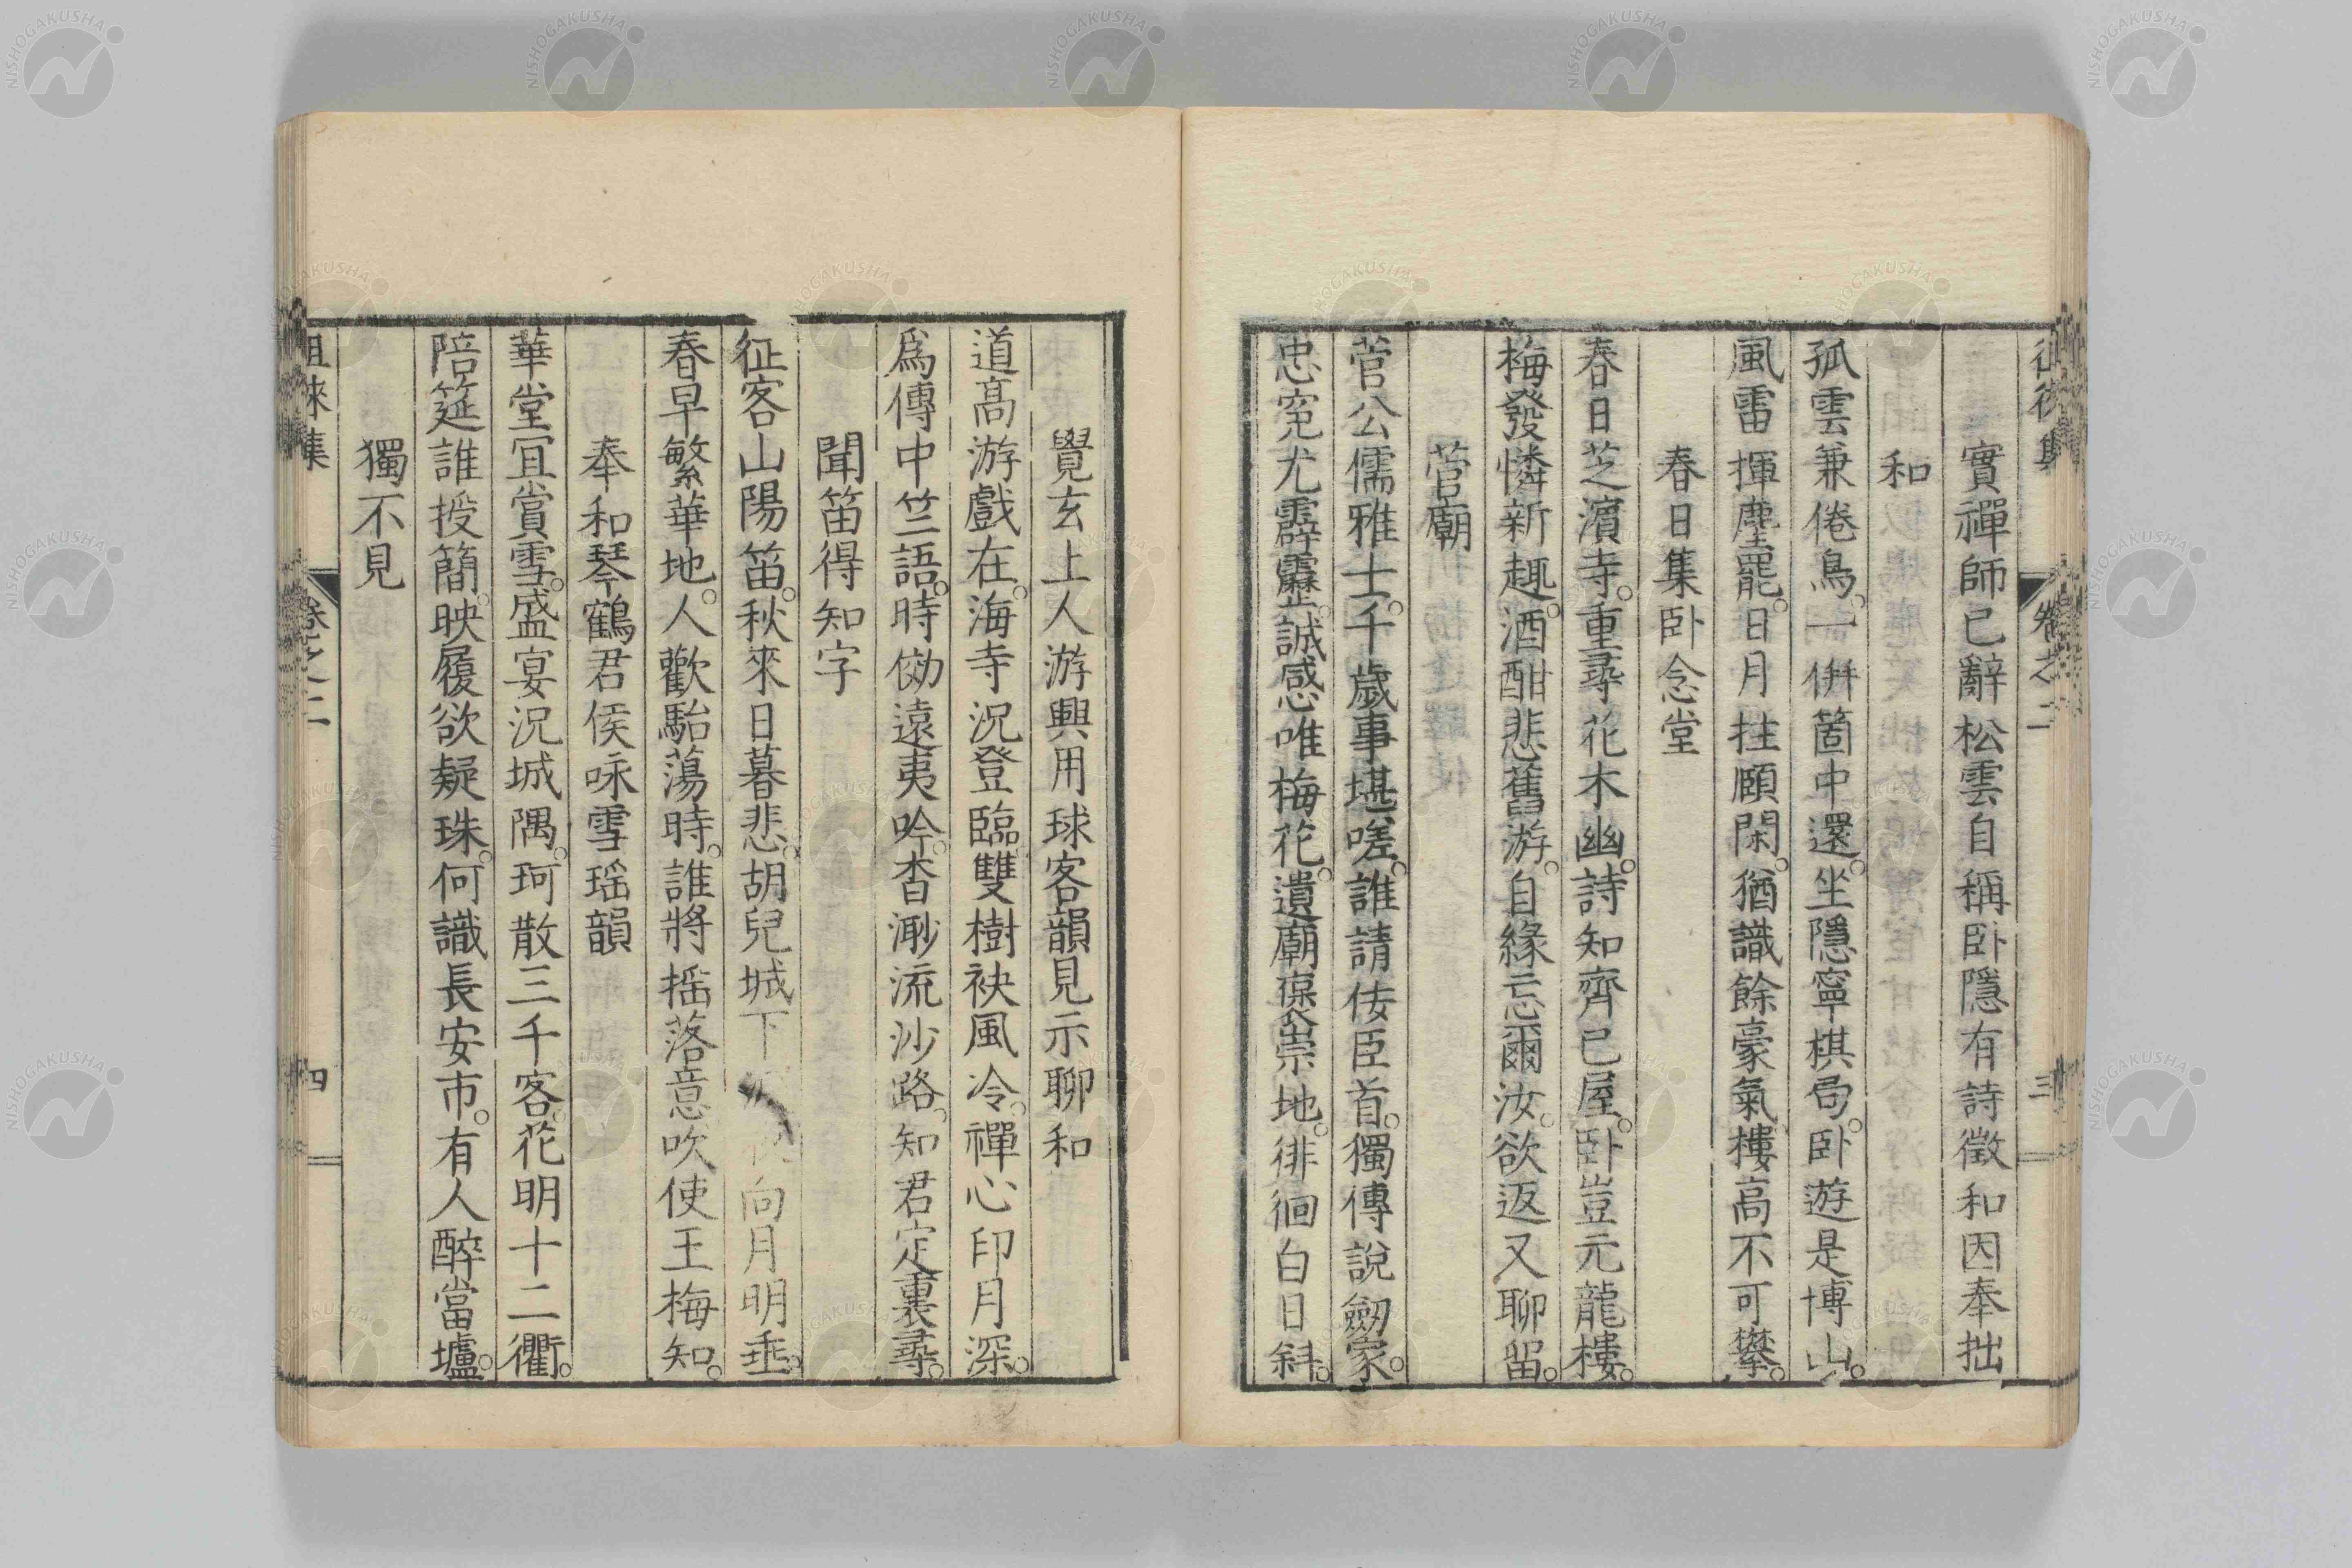 實禪師已辭松雲自稱卧隱有詩徵和因奉拙
和
孤雲兼倦鳥。一倂箇中還。坐隱寧棋局。卧遊是博山。
風雷揮塵罷。日月拄頤閑。猶識餘豪氣。樓高不可攀。
春日集卧念堂
春日芝濵寺。重尋花木幽。詩知齊已屋。卧豈元龍樓。
梅發憐新趣。酒酣悲舊游。自緣忘爾汝。欲返又聊留。
菅廟
菅公儒雅士。千歲事堪嗟。誰請佞臣首。獨傳說劒家。
忠寃尤霹靂。誠感唯梅花。遺廟襃崇地。徘徊白日斜。
卷之二
三
覺玄上人游興用球客韻見示聊和
道髙游戲在。海寺況登臨。雙樹袂風冷。禪心印月深。
爲傳中竺語。時効遠夷吟。杳渺流沙路。知君定裏尋。
聞笛得知字
征客山陽笛。秋來日暮悲。胡兒城下 向月明垂。
春早繁華地。人歡駘蕩時。誰將揺落意。吹使玉梅知。
奉和琴鶴君侯咏雪瑶韻
華堂冝賞雪。盛宴況城隅。珂散三千客。花明十二衢。
陪筵誰授簡。映履欲疑珠。何識長安市。有人醉當壚。
獨不見
徂徠集
卷之二
四